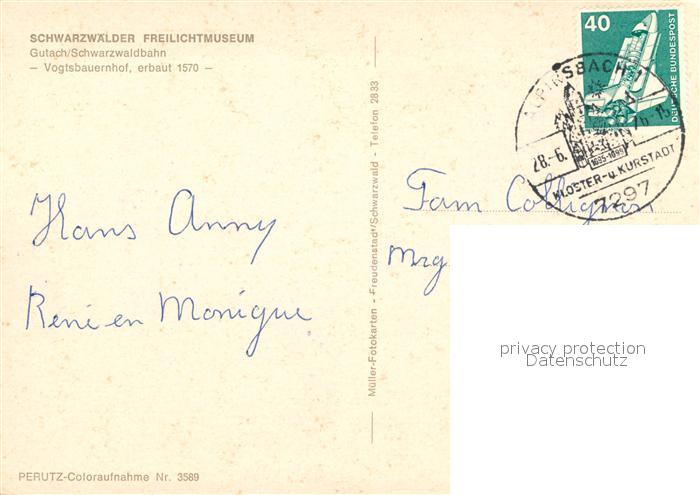 SCHWARZWÄLDER FREILICHTMUSEUM
Gutach/Schwarzwaldbahn
– Vogtsbauernhof, erbaut 1570 –
Hans Anny
René en Monique
PERUTZ-Coloraufnahme Nr. 3589
Müller-Fotokarten - Freudenstadt/Schwarzwald - Telefon 2833
40
DEUTSCHE BUNDESPOST
ALPIRSBACH 1
28.-6.
76-15
1095-1099
KLOSTER-u. KURSTADT
7297
Fam Collignon
Mrg
privacy protection
Datenschutz